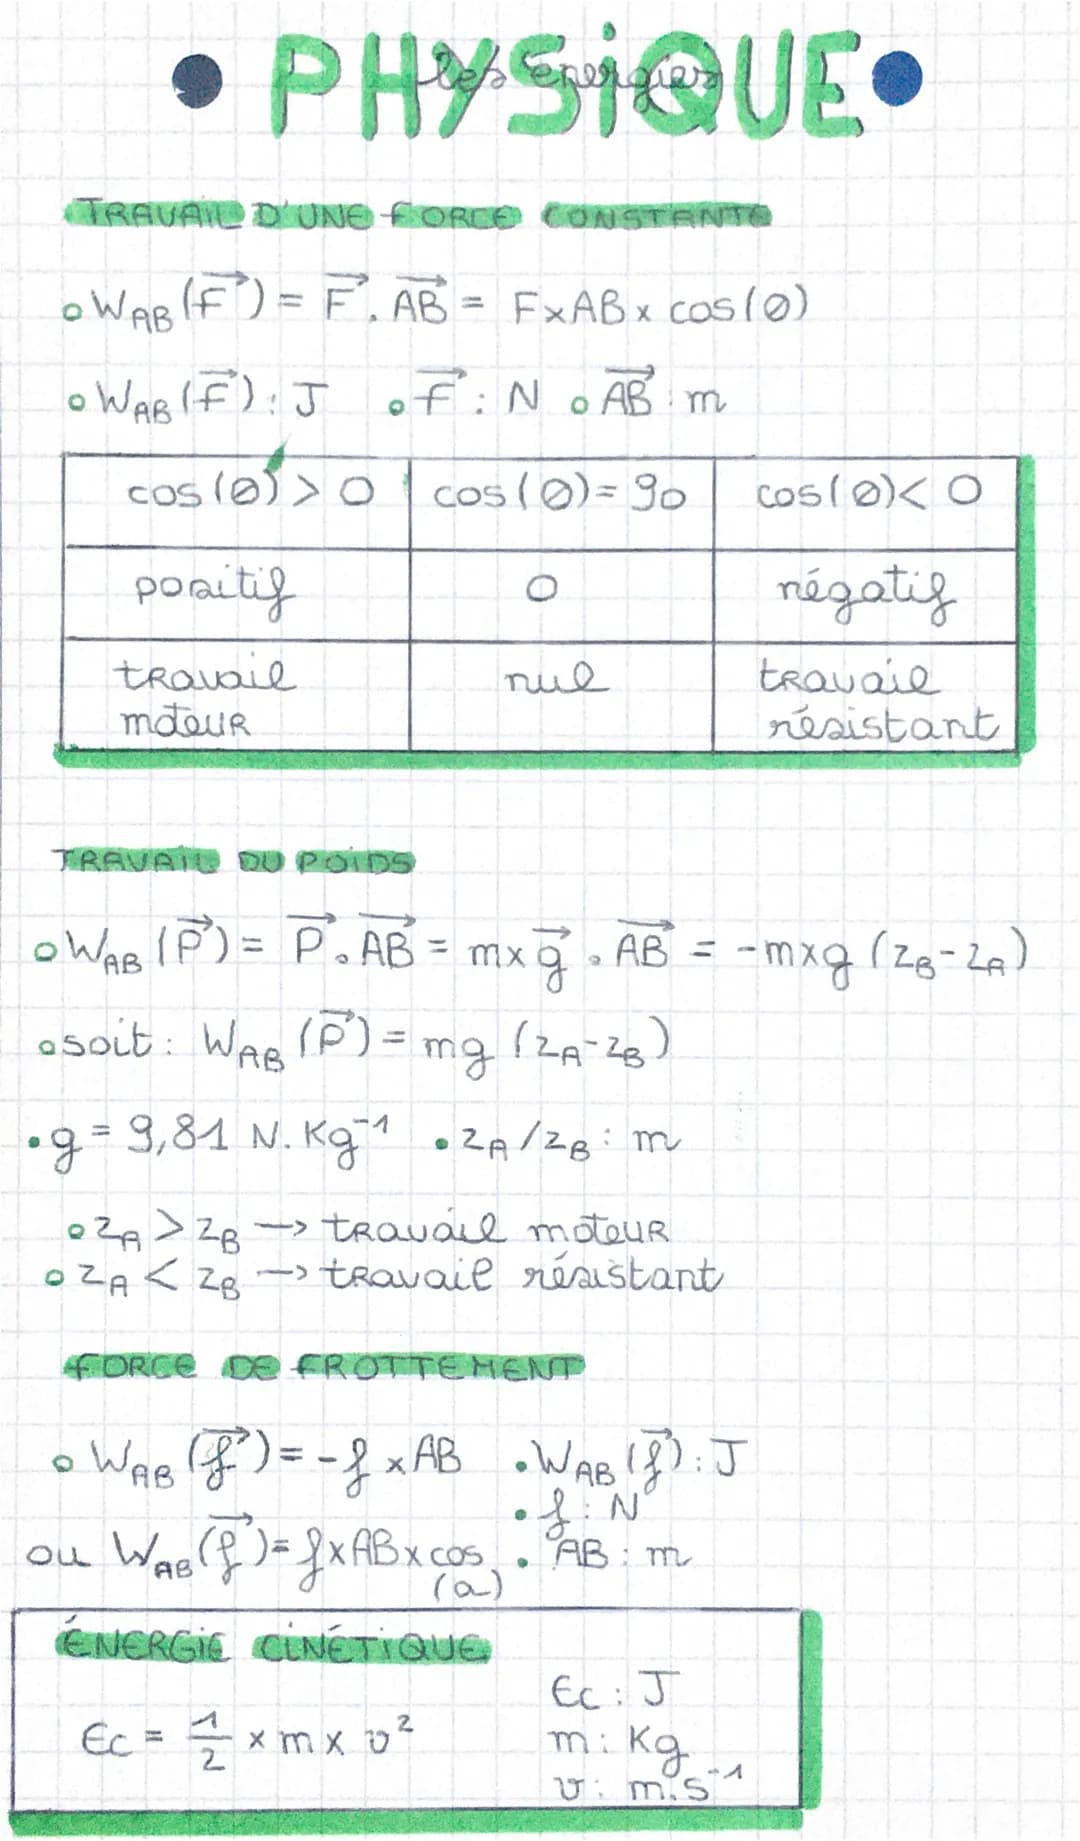 • PHYSiQUE •
les énergies
TRAVAiL D'UNE FORCE CONSTANTE
∘ W_AB (F⃗) = F⃗ . AB⃗ = F x AB x cos(Ø)
∘ W_AB (F⃗) : J ∘ F⃗ : N ∘ AB⃗ : m
cos(Ø) > 0 cos(Ø) = 90 cos(Ø) < 0
positif 0 négatif
travail moteur nul travail résistant
TRAVAiL DU POiDS
∘ W_AB (P⃗) = P⃗ . AB⃗ = m x g⃗ . AB⃗ = -m x g (z_B - z_A)
∘ soit : W_AB (P⃗) = mg (z_A - z_B)
• g = 9,81 N.Kg⁻¹ • z_A / z_B : m
∘ z_A > z_B → travail moteur
∘ z_A < z_B → travail résistant
FORCE DE FROTTEMENT
∘ W_AB (f⃗) = -f x AB • W_AB (f⃗) : J
• f : N
ou W_AB (f⃗) = f x AB x cos (a) • AB : m
ÉNERGiE CiNÉTiQUE
Ec : J
Ec = 1/2 x m x v² m : Kg
v : m.s⁻¹